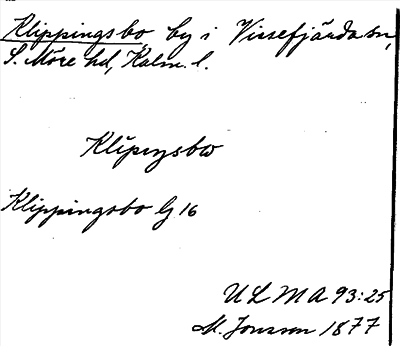 Klippingsbo by i Vissefjärda sn,
S. Möre hd, Kalm. l.
Klipiŋsbω
Klippingsbo Lj 16
ULMA 93:25
M. Jonsson 1877